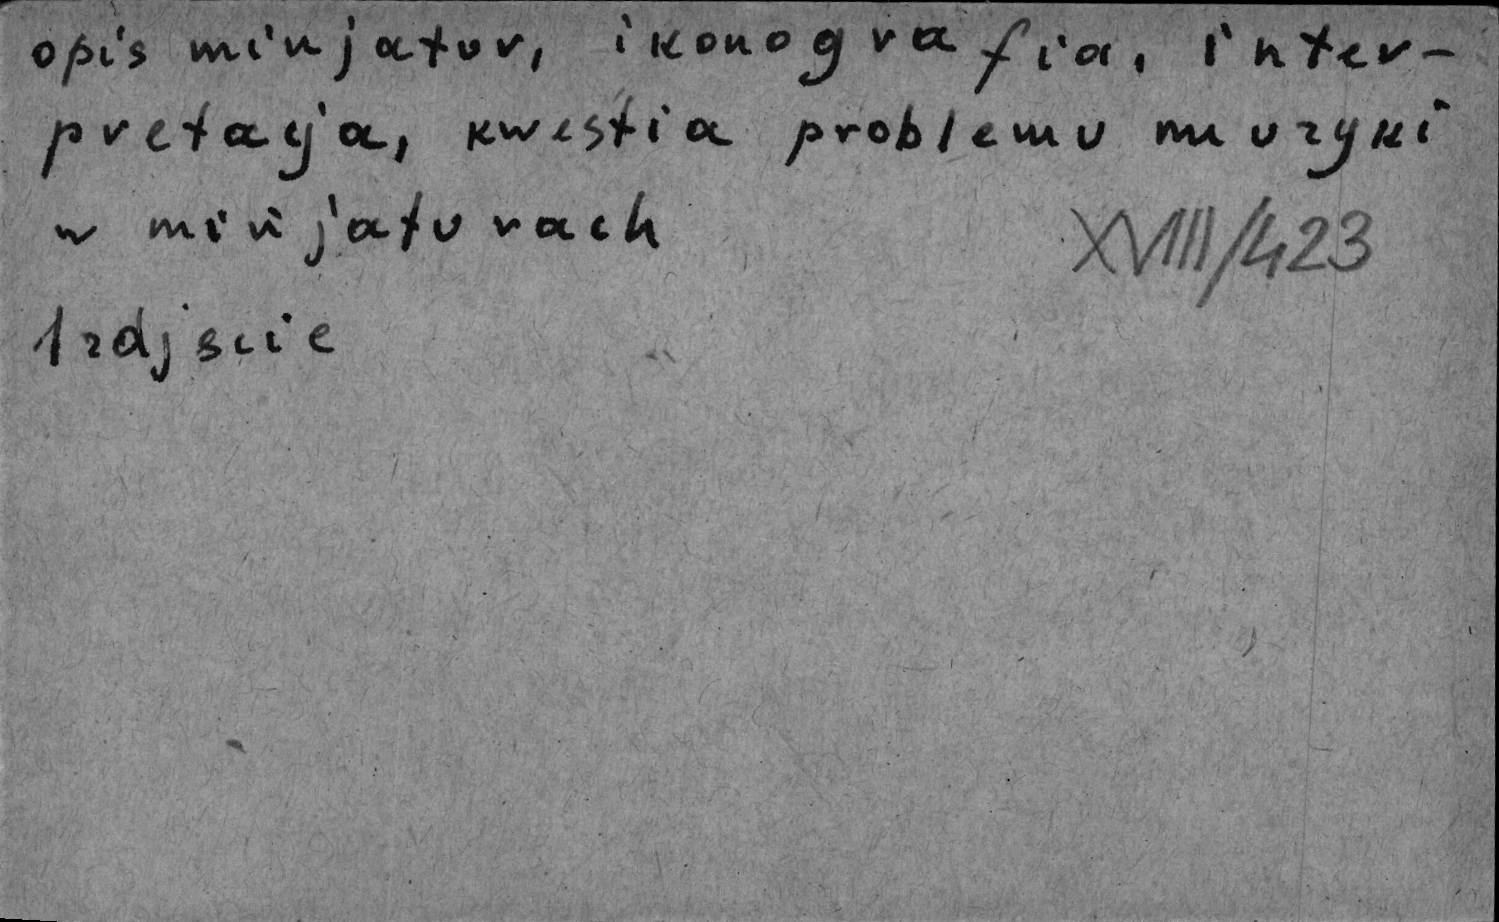 opis minjatur, ikonografia, inter-
pretacja, kwestia problemu muzyki
w minjaturach
XVIII/423
1 zdjscie